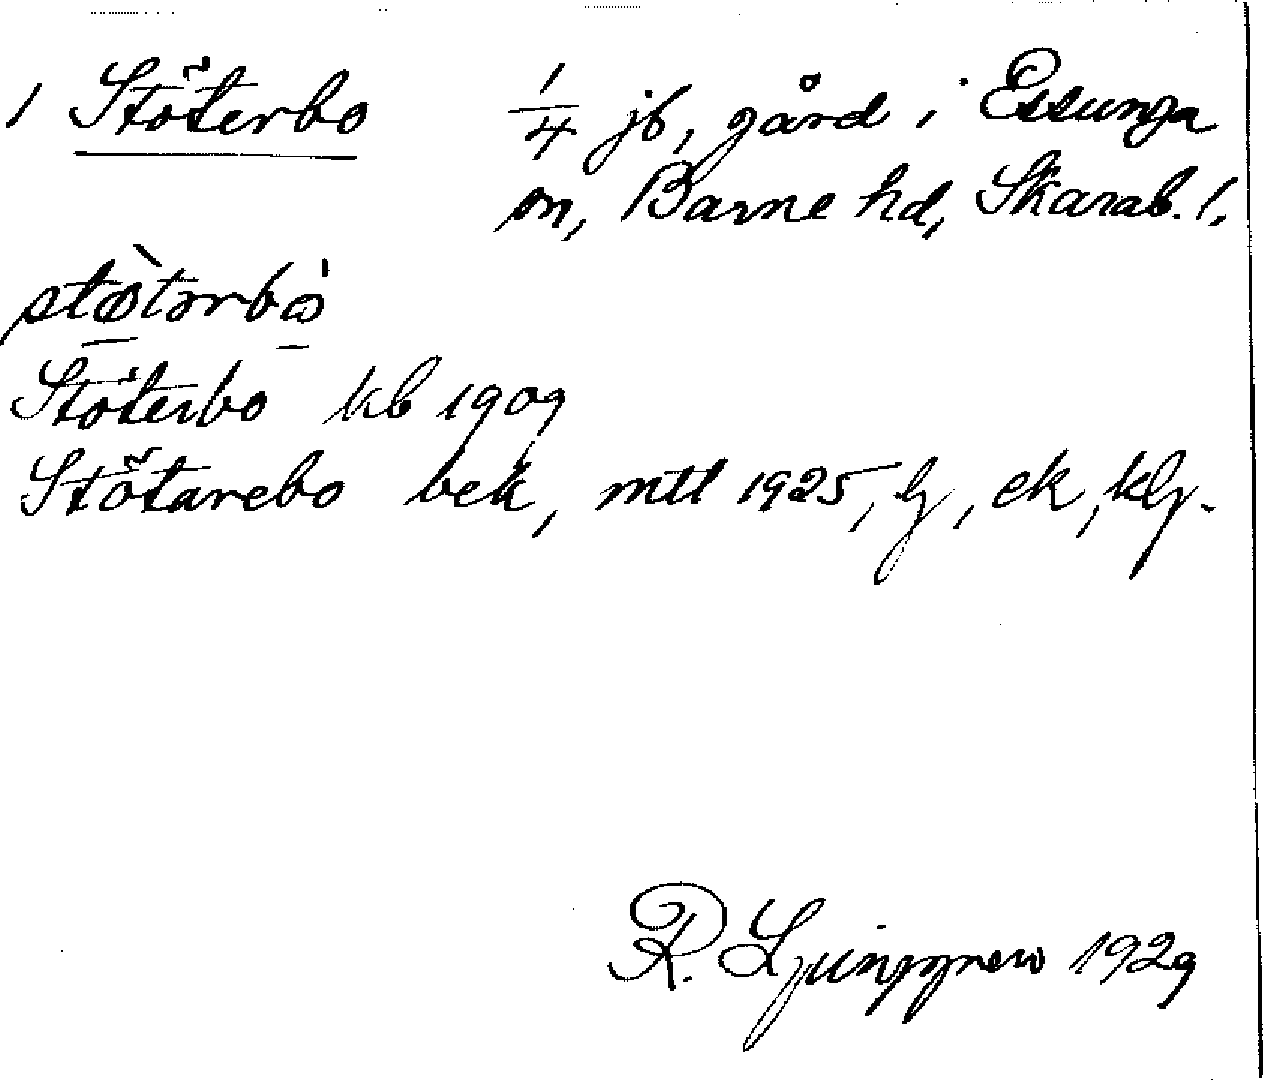 1 Stöterbo 1/4 jb, gård i Essunga
sn, Barne hd, Skarab. l.
stø̀tərbò
Stöterbo kb 1909
Stötarebo bek, mtl 1925, lj, ek, klj.
R. Ljunggren 1929